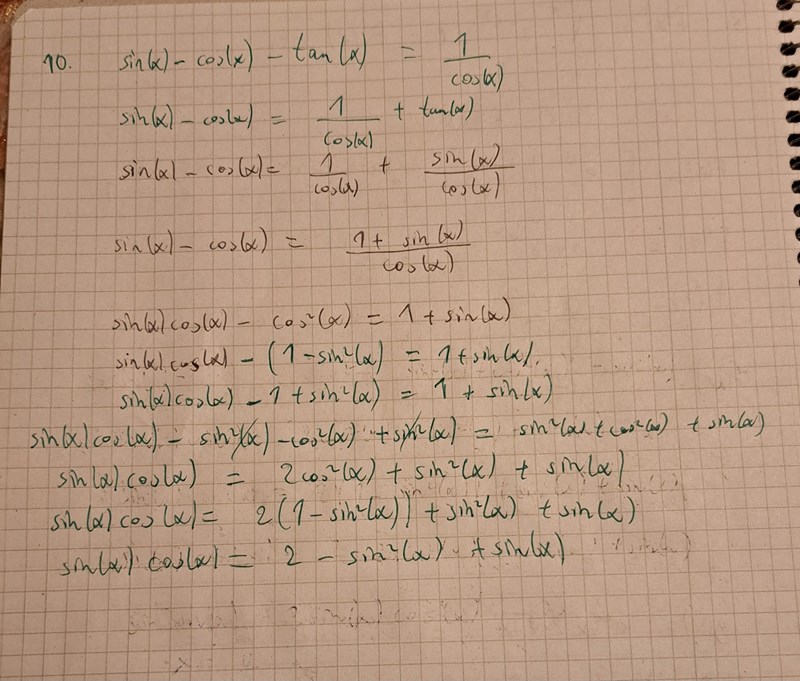 10. sin(x) - cos(x) - tan(x) = 1/cos(x)
sin(x) - cos(x) = 1/cos(x) + tan(x)
sin(x) - cos(x) = 1/cos(x) + sin(x)/cos(x)
sin(x) - cos(x) = (1 + sin(x))/cos(x)
sin(x) cos(x) - cos²(x) = 1 + sin(x)
sin(x) cos(x) - (1 - sin²(x)) = 1 + sin(x).
sin(x) cos(x) - 1 + sin²(x) = 1 + sin(x)
sin(x) cos(x) - sin²(x) - cos²(x) + sin²(x) = sin²(x) + cos²(x) + sin(x)
sin(x) cos(x) = 2cos²(x) + sin²(x) + sin(x)
sin(x) cos(x) = 2(1 - sin²(x)) + sin²(x) + sin(x)
sin(x) cos(x) = 2 - sin²(x) + sin(x)